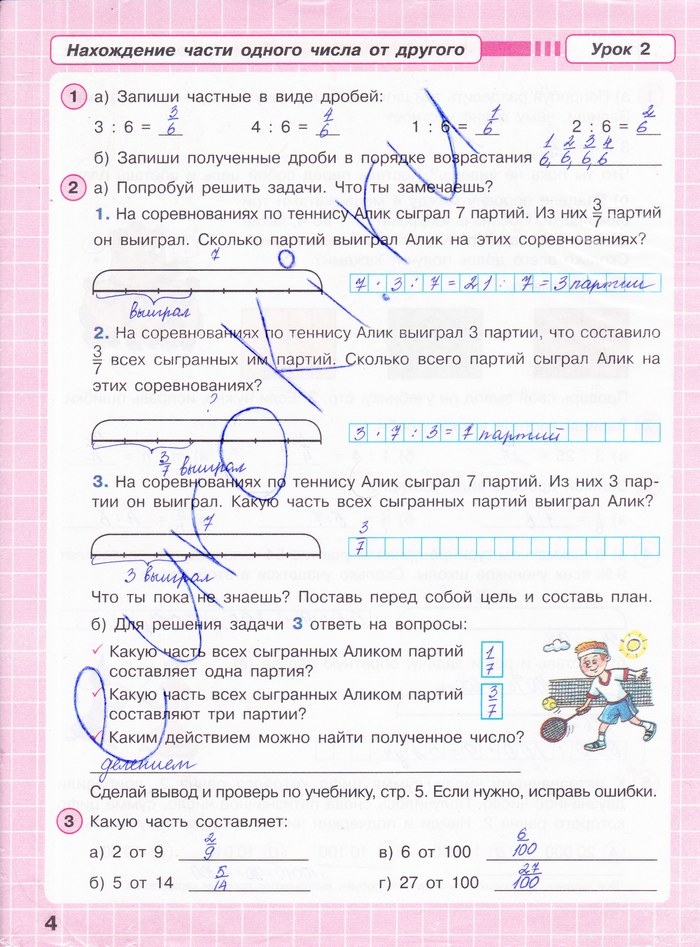 Нахождение части одного числа от другого
Урок 2
1 а) Запиши частные в виде дробей:
3 : 6 = 3/6 4 : 6 = 4/6 1 : 6 = 1/6 2 : 6 = 2/6
б) Запиши полученные дроби в порядке возрастания 1/6, 2/6, 3/6 4/6
2 а) Попробуй решить задачи. Что ты замечаешь?
1. На соревнованиях по теннису Алик сыграл 7 партий. Из них 3/7 партий
он выиграл. Сколько партий выиграл Алик на этих соревнованиях?
7
7 · 3 : 7 = 21 : 7 = 3 партии
выиграл
2. На соревнованиях по теннису Алик выиграл 3 партии, что составило
3/7 всех сыгранных им партий. Сколько всего партий сыграл Алик на
этих соревнованиях?
?
3 · 7 : 3 = 7 партий
3/7 выиграл
3. На соревнованиях по теннису Алик сыграл 7 партий. Из них 3 пар-
тии он выиграл. Какую часть всех сыгранных партий выиграл Алик?
7
3/7
3 выиграл
Что ты пока не знаешь? Поставь перед собой цель и составь план.
б) Для решения задачи 3 ответь на вопросы:
✓ Какую часть всех сыгранных Аликом партий
составляет одна партия? 1/7
✓ Какую часть всех сыгранных Аликом партий
составляют три партии? 3/7
✓ Каким действием можно найти полученное число?
делением
Сделай вывод и проверь по учебнику, стр. 5. Если нужно, исправь ошибки.
3 Какую часть составляет:
а) 2 от 9 2/9 в) 6 от 100 6/100
б) 5 от 14 5/14 г) 27 от 100 27/100
4